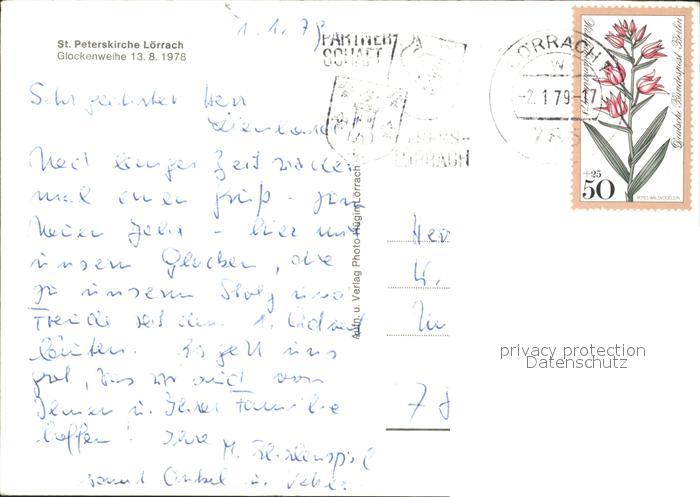 1.1.79
St. Peterskirche Lörrach
Glockenweihe 13. 8. 1978
PARTNER
SCHAFT
LÖRRACH
LÖRRACH
-2.1.79-17
Deutsche Bundespost Berlin
+25
50
ROTES WALDVÖGELEIN
Sehr geehrter Herr
Nach langer Zeit wieder
mal einen Gruß - zum
Neuen Jahr - hier mit
unseren Glocken, die
zu unserem Stolz und
Freude seit dem 1. Advent
läuten. Es geht uns
gut, was wir auch von
Ihnen u. Ihrer Familie
hoffen! Ihre M.
samt Onkel u.
Aufn. u. Verlag Photo Hügin Lörrach
Her
7 8
privacy protection
Datenschutz